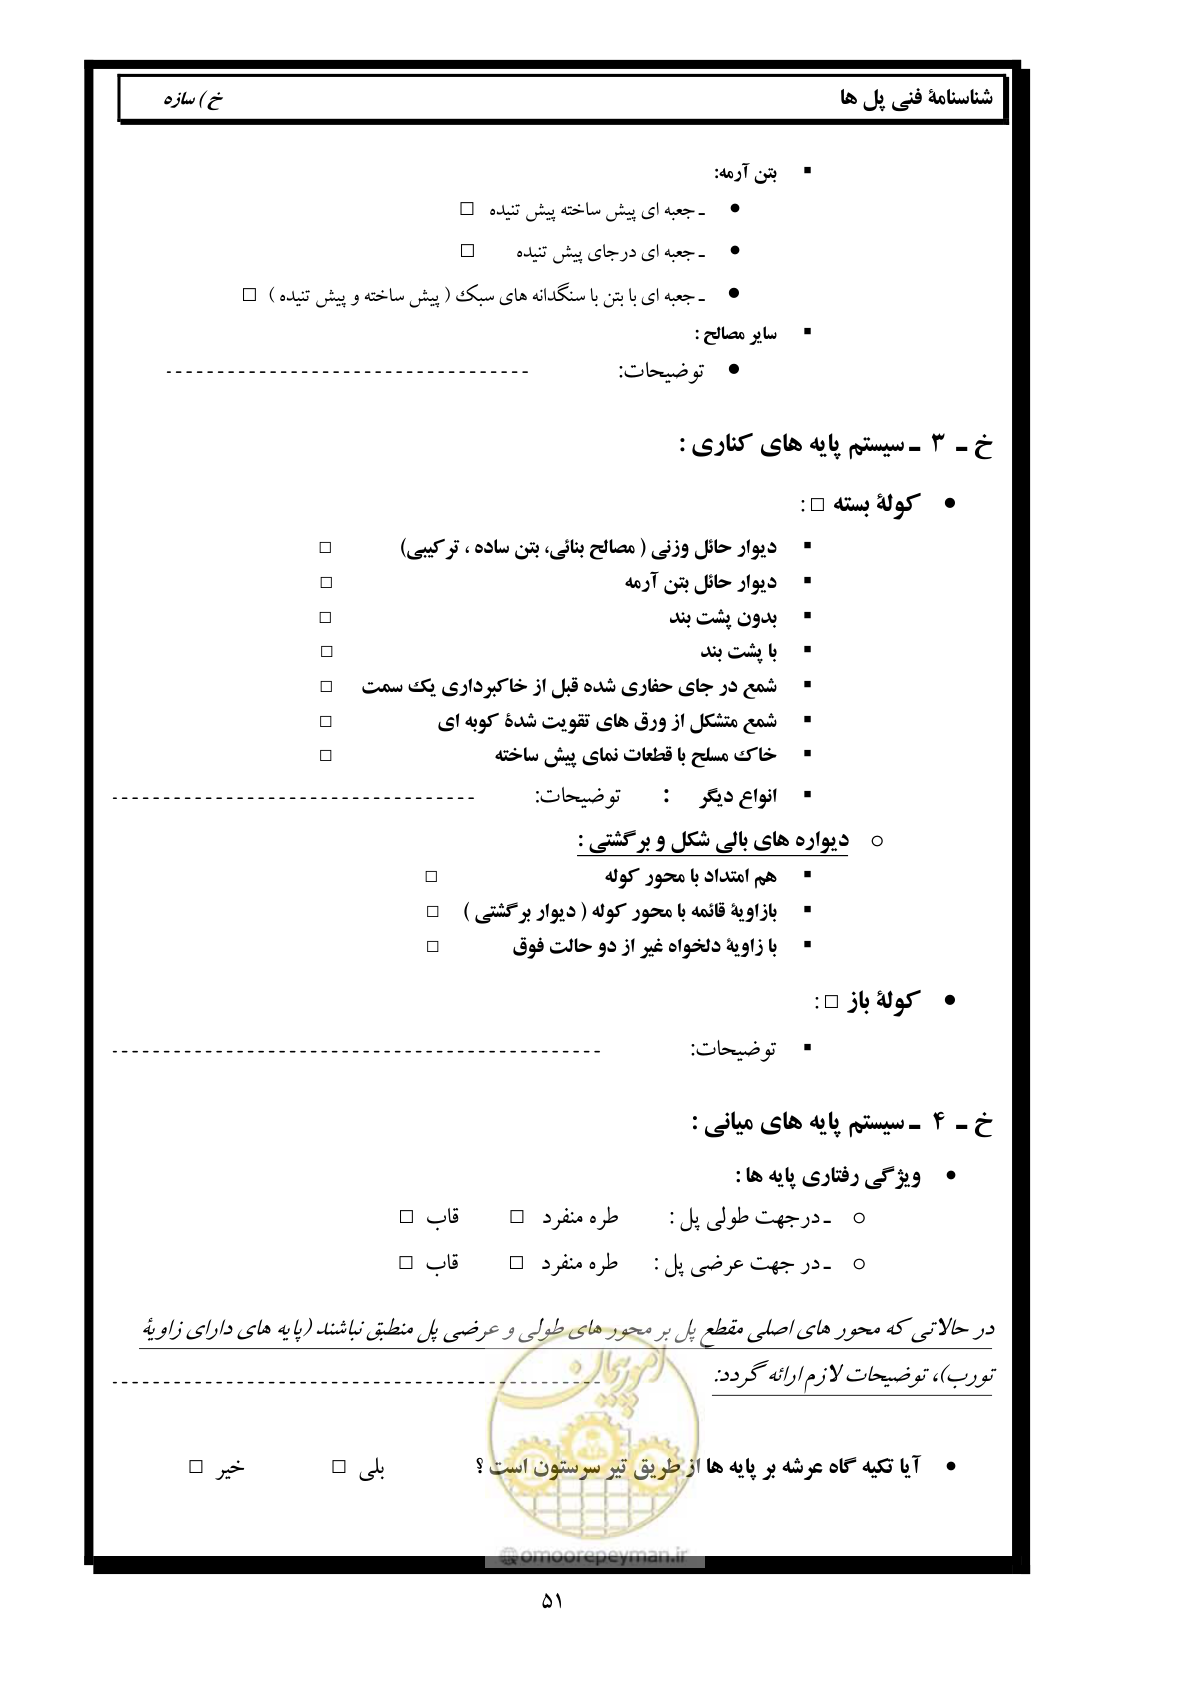 شناسنامهٔ فنی پل ها
خ ) سازه
▪ بتن آرمه:
● ـ جعبه ای پیش ساخته پیش تنیده □
● ـ جعبه ای درجای پیش تنیده □
● ـ جعبه ای با بتن با سنگدانه های سبک ( پیش ساخته و پیش تنیده ) □
▪ سایر مصالح :
● توضیحات: -----------------------------------
خ ـ ۳ ـ سیستم پایه های کناری :
● کولهٔ بسته □ :
▪ دیوار حائل وزنی ( مصالح بنائی، بتن ساده ، ترکیبی) □
▪ دیوار حائل بتن آرمه □
▪ بدون پشت بند □
▪ با پشت بند □
▪ شمع در جای حفاری شده قبل از خاکبرداری یک سمت □
▪ شمع متشکل از ورق های تقویت شدهٔ کوبه ای □
▪ خاک مسلح با قطعات نمای پیش ساخته □
▪ انواع دیگر : توضیحات: -----------------------------------
○ دیواره های بالی شکل و برگشتی :
▪ هم امتداد با محور کوله □
▪ بازاویهٔ قائمه با محور کوله ( دیوار برگشتی ) □
▪ با زاویهٔ دلخواه غیر از دو حالت فوق □
● کولهٔ باز □ :
▪ توضیحات: -----------------------------------------------
خ ـ ۴ ـ سیستم پایه های میانی :
● ویژگی رفتاری پایه ها :
○ ـ درجهت طولی پل : طره منفرد □ قاب □
○ ـ در جهت عرضی پل : طره منفرد □ قاب □
در حالاتی که محور های اصلی مقطع پل بر محور های طولی و عرضی پل منطبق نباشند (پایه های دارای زاویهٔ
تورب)، توضیحات لازم ارائه گردد: -----------------------------------------------
امور پیمان
● آیا تکیه گاه عرشه بر پایه ها از طریق تیر سرستون است ؟ بلی □ خیر □
@omoorepeyman.ir
۵۱